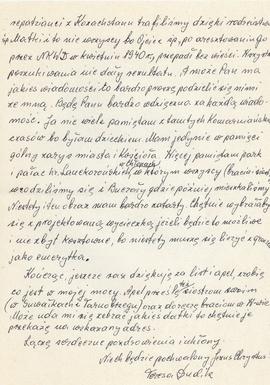 repatrianci z Kazachstanu trafiliśmy dzięki rodzeństwu
śp. Matki i to nie wszyscy bo Ojciec śp. po aresztowaniu go
przez NKWD w kwietniu 1940 r, przepadł bez wieści. Wszystkie
poszukiwania nie dały rezultatu. A może Pan ma
jakieś wiadomości to bardzo proszę podzielić się nimi
ze mną. Będę Panu bardzo wdzięczna za każdą wiadomość.
Ja nie wiele pamiętam z tamtych
czasów bo byłam dzieckiem. Mam jedynie w pamięci
gólny zarys miasta i Kościoła. Więcej pamiętam park
i pałac hr. Lanckorońskich w którym wszyscy (bracia i siostry)
urodziliśmy się i Buczały gdzie później mieszkaliśmy
Niestety i tu obraz mam bardzo zatarty. Chętnie wybrałabym
się z projektowaną wycieczką, jeżeli będzie to możliwe
i nie zbyt kosztowne, bo niestety muszę się liczyć z groszem
jako emerytka.
Kończąc, jeszcze raz dziękuję za list i apel, zrobię
co jest w mojej mocy. Apel prześlę też siostrom swoim
w Suwałkach i Tarnobrzegu oraz doręczę braciom w K-wie
Może uda mi się zebrać jakieś datki to chętnie je
przekażę na wskazany adres.
Łączę serdeczne pozdrowienia i ukłony
Niech będzie pochwalony Jezus Chrystus.
Teresa